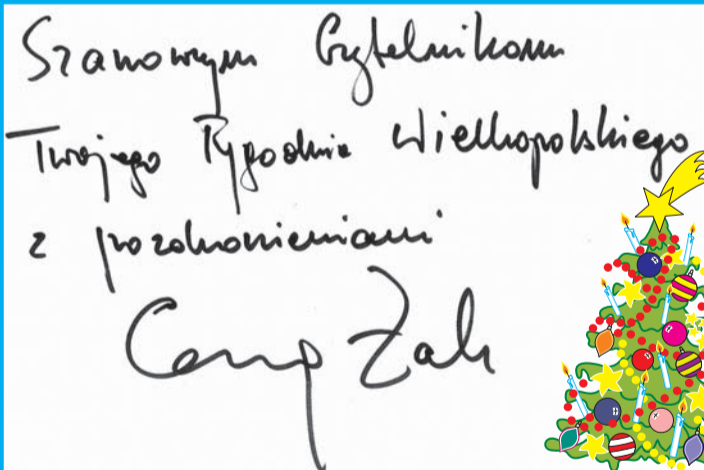 Szanownym Czytelnikom
Twojego Tygodnia Wielkopolskiego
z pozdrowieniami
Cezary Żak